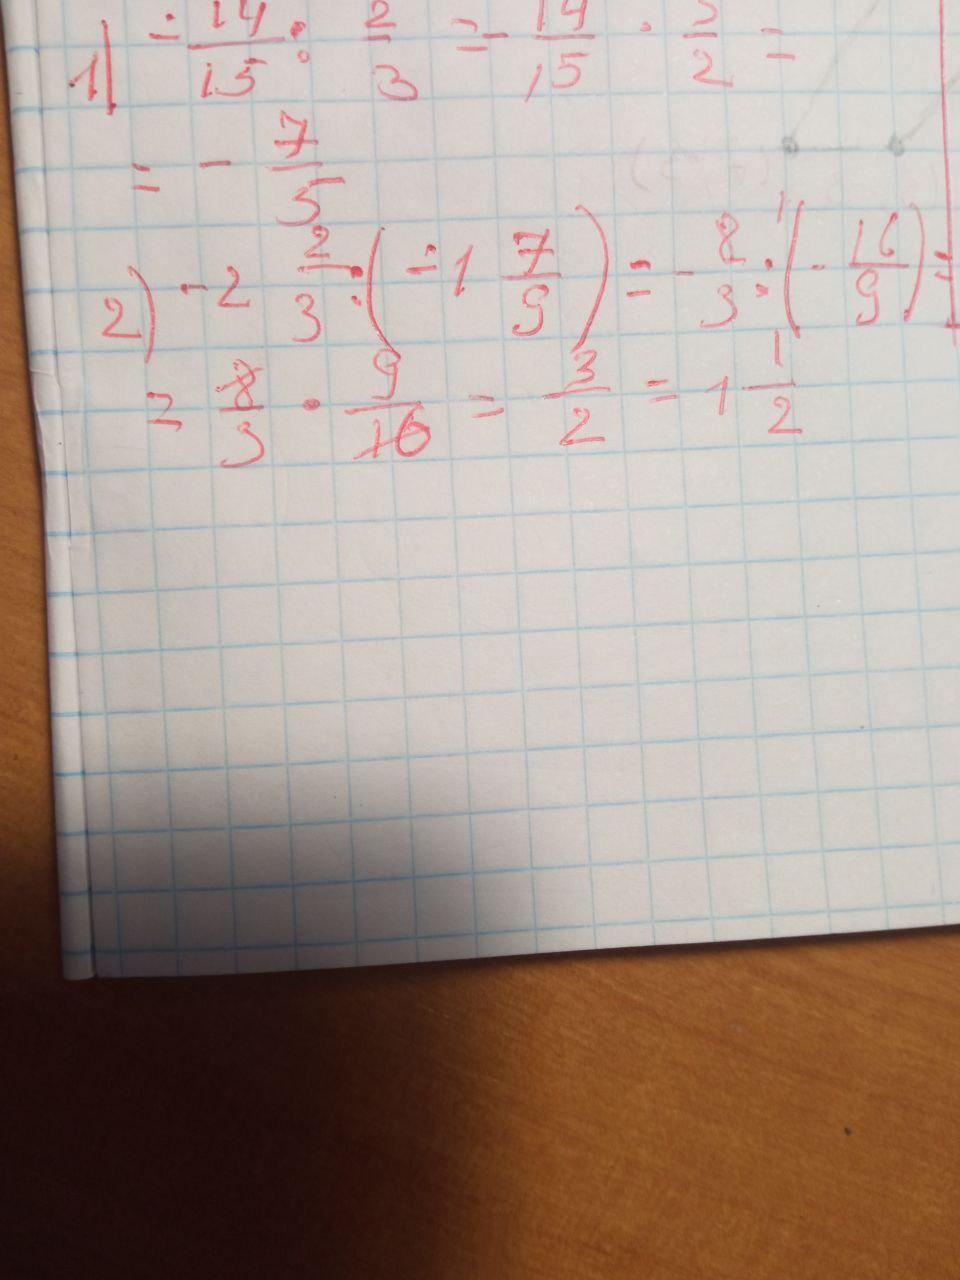 1) - 14/15 : 2/3 = - 14/15 · 3/2 =
= - 7/5
2) - 2 2/3 : (- 1 7/9) = - 8/3 : (- 16/9) =
= 8/3 · 9/16 = 3/2 = 1 1/2